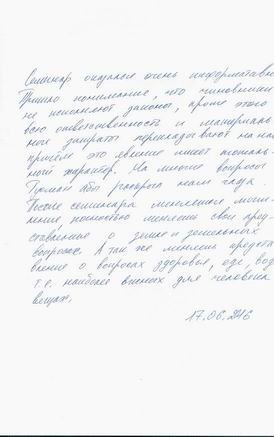 Семинар оказался очень информативн
Пришло понимание, что чиновники
не исполняют законы, кроме этого
всю ответственность и материаль
ные затраты перекладывают на на
причем это явление имеет тоталь-
ный характер. На многие вопросы
раскрыла нам глаза.
После семинара меняется мыш-
ление, полностью меняешь свои пред-
ставление о земле и земельных
вопросах. А так же меняешь предста
вление о вопросах здоровья, еде, вод
т.е. наиболее важных для человека
вещах.
17.06.2016